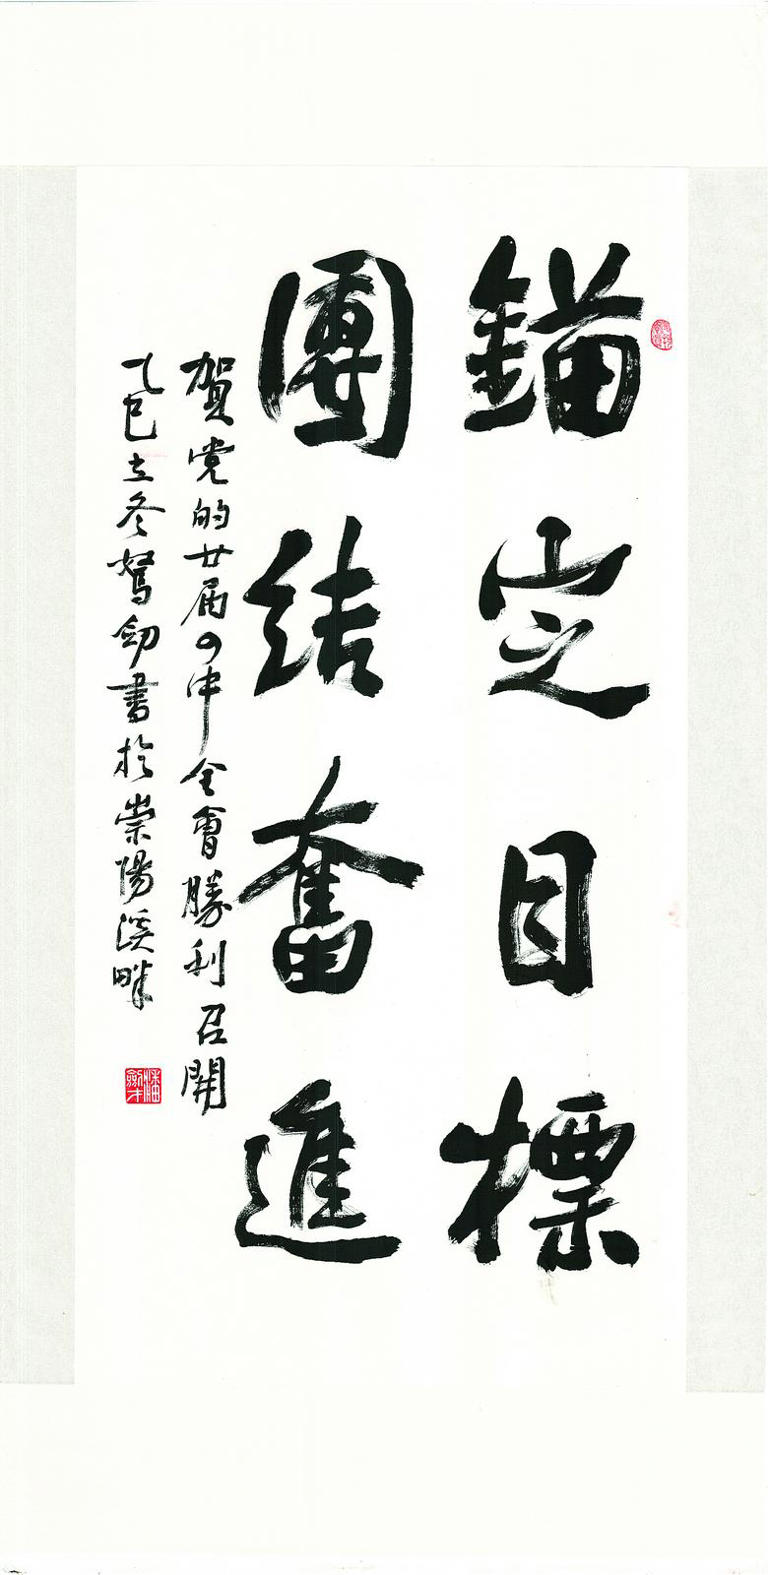 錨定目標
團結奮進
賀党的廿届四中全會勝利召開
乙巳立冬駑劍書於崇陽溪畔